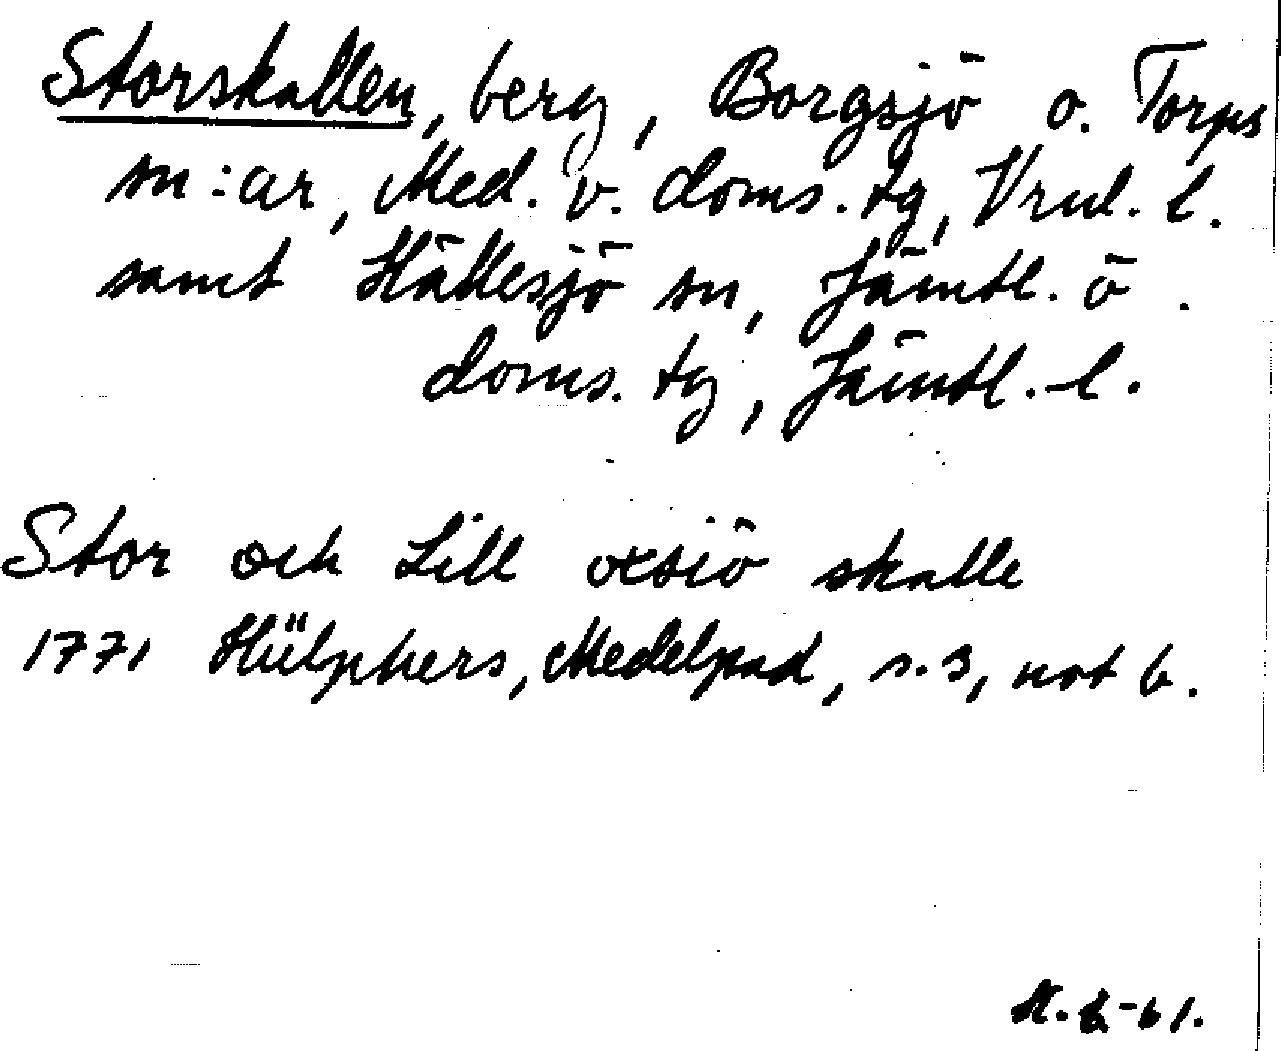 Storskallen, berg, Borgsjö o. Torps
sn:ar, Med. v. doms. tg, Vrnl. l.
samt Hällesjö sn, Jämtl. ö.
doms. tg, Jämtl. l.
Stor och Lill oxsiö skalle
1771 Hülphers, Medelpad, s. 3, not b.